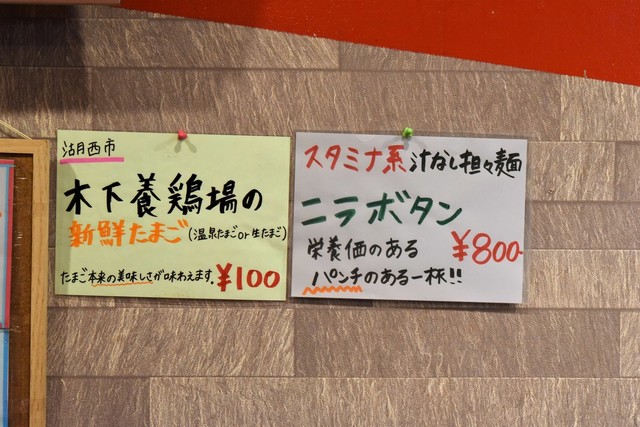 湖西市
木下養鶏場の
新鮮たまご(温泉たまごor生たまご)
たまご本来の美味しさが味わえます。¥100
スタミナ系 汁なし担々麺
ニラボタン
栄養価のある ¥800-
パンチのある一杯!!